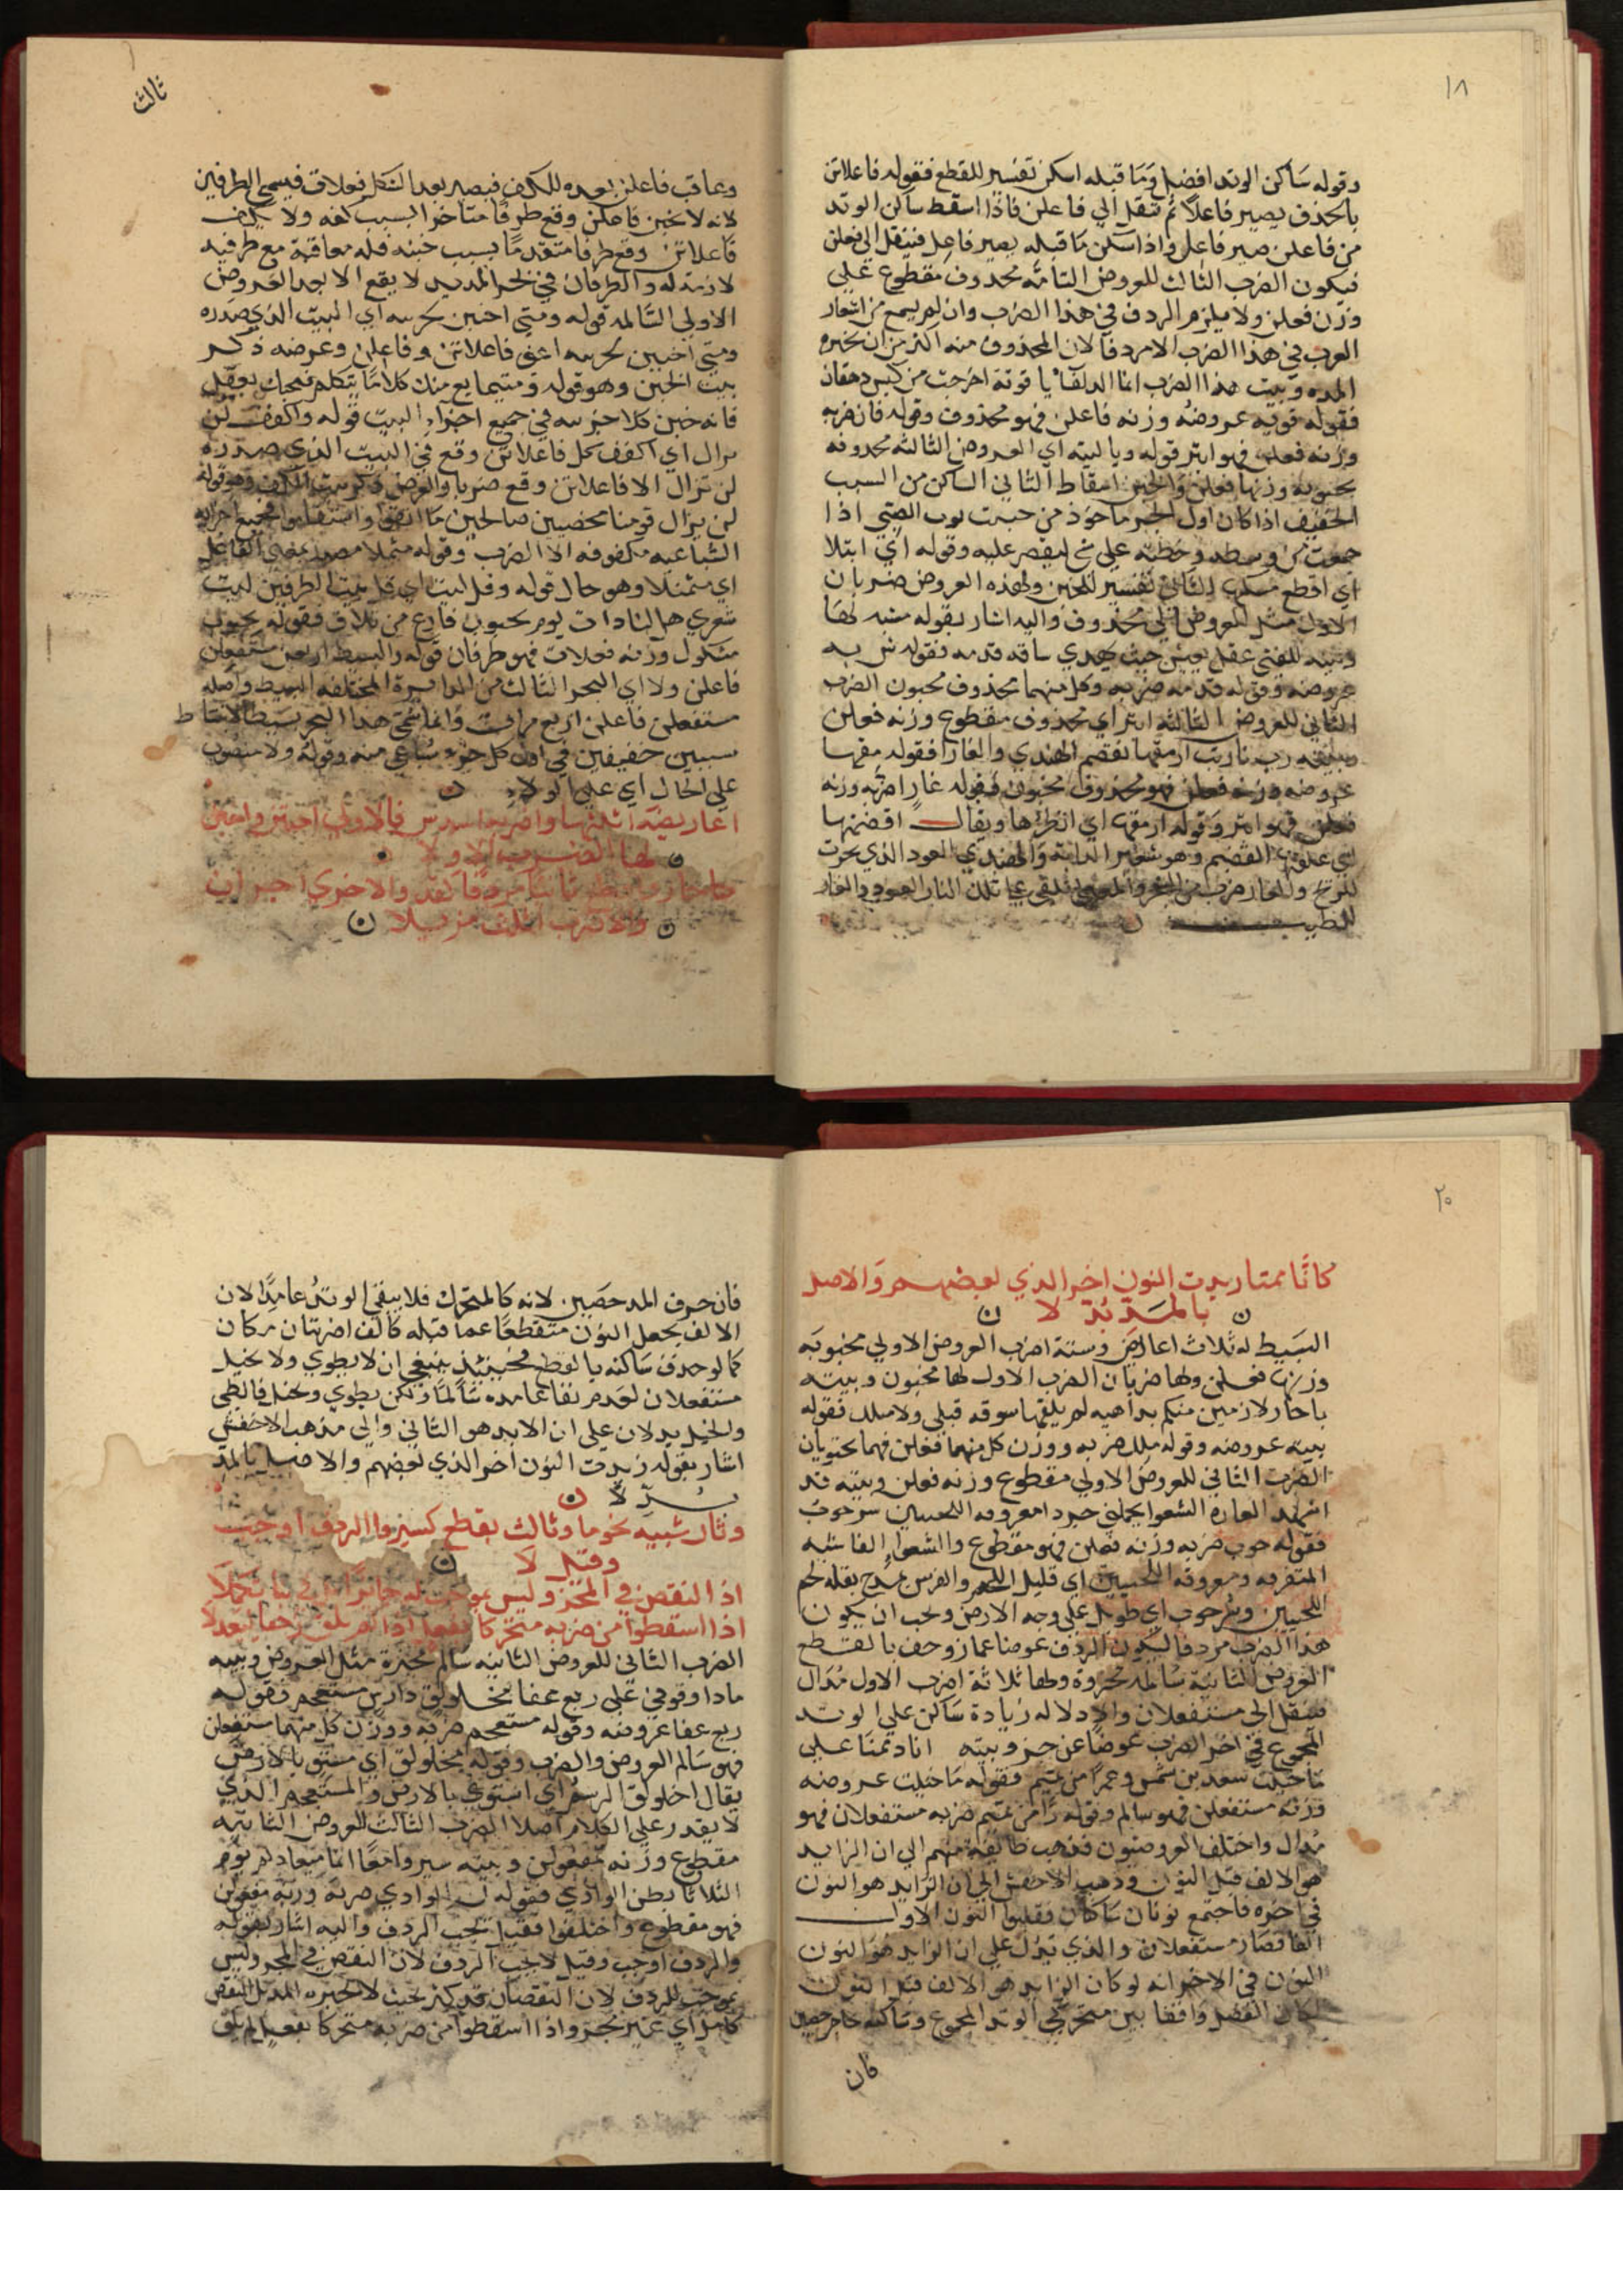 ١٨
وقوله ساكن الوتد افضل وما قبله اسكن تفسير للقطع فقوله فاعلاتن
بالحذف يصير فاعلا ثم تنقل الي فاعلن فاذا اسقط ساكن الوتد
من فاعلن صير فاعل واذا اسكن ما قبله يصير فاعل فينقل الي فعلن
فيكون الضرب الثالث للعروض التامه محذوف مقطوع علي
وزن فعلن ولا يلزم الردف في هذا الضرب وان لم يسمع من اشعار
العرب في هذا الضرب الا مردفا لان المحذوف منه اكثر من ان يجبره
المده وبيت هذا الضرب انما الدلفا يا قوتة اخرجت من كيس دهقان
فقوله قوته عروضه وزنه فاعلن فهو محذوف وقوله قان ضربه
وزنه فعلن فهو ابتر قوله وبالبيته اي العروض الثالثه محذوفه
مخبونه وزنها فعلن والخبن اسقاط الثاني الساكن من السبب
الخفيف اذا كان اول الجبر ماخوذ من خبنت ثوب الصبي اذا
جمعت من وسطه وخطته علي ليقصر عليه وقوله اي ابتلا
اي اقطع الثاني تفسير للخبن ولهذه العروض ضربان
الاول مثل العروض محذوف واليه اشار بقوله مشبه لها
وبيته للفتي عقل يعيش حيث تهدي ساقه قدمه فقوله ش به
عروضه وقوله قدمه ضربه وكل منهما محذوف مخبون الضرب
الثاني للعروض الثالثه ابتر اي محذوف مقطوع وزنه فعلن
وبيته رب نار بت ارمقها تقضم الهندي والغارا فقوله مقها
عروضه وزنه فعلن فهو محذوف مخبون فقوله غارا ضربه وزنه
فعلن فهو ابتر وقوله ارمقها اي انظرها ويقال اقضمتها
القضم وهو شعير الدابة والهندي العود الذي
والغار ضرب من الشجر تلك النار العود والغار
الطيب
ثالث
وعاقب فاعلن بعده للكف فيصير بعد الشكل فعلات فيسمي الطرفين
لانه لا خبن فاعلن وقع طرفا متاخرا لسبب كفه ولا يكف
فاعلاتن وقع طرفا متقدما بسبب خبنه فله معاقبة مع طرفيه
لازمة له والطرفان في بحر المديد لا يقع الا بعد العروض
الاولي السالمه قوله ومتي اخبن اي البيت الذي صدره
ومتي اخبن فاعلاتن وفاعلن وعوضه ذكر
بيت الخبن وهو قوله ومتي ما يع منك كلاما يتكلم فيجبك بعقل
فانه خبن كلا في جميع اجزاء البيت قوله واكفف لن
يزال اي اكفف كل فاعلاتن وقع في البيت الذي صدره
لن تزال الا فاعلاتن وقع ضربا والعوض ذكر بيت الكف وهو قوله
لن يزال قومنا مخصبين صالحين ما اتقوا واستقاموا فجميع اجزايه
السباعيه مكفوفه الا الضرب وقوله متمثلا بمعني الفاعل
اي متمثلا وهو حال قوله وقل ليت اي قل بيت الطرفين ليت
شعري هل لنا ذات يوم بجنوب فارع من تلاق فقوله بجنوب
مشكول وزنه فعلات فهو طرفان قوله والبسيط اربعن مستفعلن
فاعلن ولا اي البحر الثالث من الدايرة المختلفه البسيط واصله
مستفعلن فاعلن اربع مرات وانما سمي هذا البحر بسيطا لانبساط
سببين خفيفين في اول كل جزء سباعي منه وقوله ولا منصوب
علي الحال اي علي الولاء ن
اعاريضه اثلثها واضربها فالاولي اخبنن واخبن
ن لها الضرب الاولا ن
والاخري
ن والاضرب مذيلا ن
٢٠
كانا متما زيدت النون اخر الذي لبعضهم والاصل
ن بالمد بدلا ن
البسيط له ثلاث اعاريض وستة اضرب العروض الاولي مخبونه
وزنها فعلن ولها ضربان الضرب الاول لها مخبون وبيته
يا حار لا ارمين منكم بداهيه لم يلقها سوقه قبلي ولا ملك فقوله
بيته عروضه وقوله ملك ضربه ووزن كل منهما فعلن فهما مخبونان
الضرب الثاني للعروض الاولي مقطوع وزنه فعلن وبيته قد
اشهد الغاره الشعوا تحملني جردا معروقة اللحيين سرحوب
فقوله حوب ضربه وزنه فعلن فهو مقطوع والشعواء الفاشيه
المتفرقه ومعروقه اللحيين اي قليل اللحم والفرس يمدح بقلة لحم
اللحيين وسرحوب اي طويل علي وجه الارض ويجب ان يكون
هذا الضرب مردفا ليكون الردف عوضا عما زوحف بالقطع
العروض الثانية سالمه مجزوة ولها ثلاثة اضرب الاول مذال
فينقل الي مستفعلان والاذلاله زيادة ساكن علي الوتد
المجموع في اخر الضرب عوضا عن جزو بيته انا ذممنا علي
ما خيلت سعد بن شمس وعمرا من تميم فقوله ما خيلت عروضه
وزنه مستفعلن فهو سالم وقوله را من تميم ضربه مستفعلان فهو
مذال واختلف العروضيون فذهب طايفة منهم الي ان الزايد
هو الالف قبل النون وذهب الاخفش الي ان الزايد هو النون
في اخره فاجتمع نونان ساكنان فقلبوا النون الاول
الفا فصار مستفعلان والذي تدل علي ان الزايد هو النون
النون في الاخر انه لو كان الزايد هو الالف قبل النون
لكان الفصل واقفا بين متحركي الوتد المجموع وساكنه حاجز حصين
فان
فان حرف المد حصين لانه كالمتحرك فلا يبقي الوتد عامدا لان
الالف يجعل النون منقطعا عما قبله كالف اضربنان مكان
كما لو حذف ساكنه بالقطع فحينئذ ينبغي ان لا يطوي ولا يخبل
مستفعلان لعدم بقا عامده سالما ولكن يطوي ويخبل فالطي
والخبل يدلان علي ان الابد هو الثاني والي مذهب الاخفش
اشار بقوله زيدت النون اخر الذي لبعضهم والاصل بالمد
بدلا ن
وثان شبيه نحو ماذا وثالث بقطع كسيروا الردف اوجبت
وقيل لا ن
اذ النقص في المجز وليس
اذا اسقطوا من ضربه متحركا
الضرب الثاني للعروض الثانيه سالم مجزوة مثل العروض وبيته
ماذا وقوفي علي ربع عفا مخلولق دارس مستعجم فقوله
ربع عفا عروضه وقوله مستعجم ضربه ووزن كل منهما مستفعلن
فهو سالم العروض والضرب وقوله مخلولق اي مستو بالارض
يقال اخلولق الرسم اي استوي بالارض والمستعجم الذي
لا يقدر علي الكلام اصلا الضرب الثالث للعروض الثانيه
مقطوع وزنه مفعولن وبيته سيروا معا انما ميعادكم يوم
الثلاثا بطن الوادي فقوله ن الوادي ضربه وزنه مفعولن
فهو مقطوع واختلفوا فقيل تجب الردف واليه اشار بقوله
والردف اوجب وقيل لا يجب الردف لان النقص في المجز وليس
بموجب للردف لان النقصان قد كثر بحيث لا تجبره المد
كامل اي غير مجزو واذا اسقطوا من ضربه متحركا